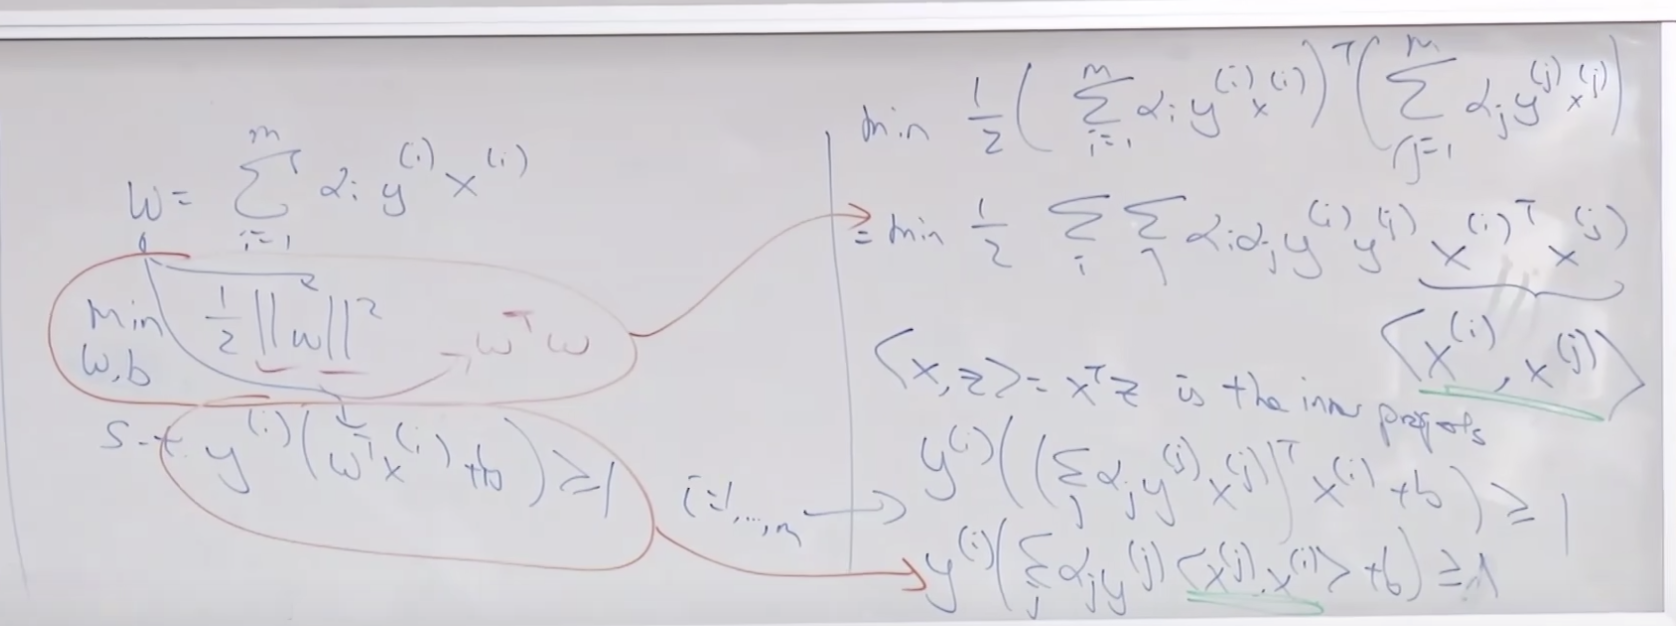 w = \sum_{i=1}^{m} α_i y^{(i)} x^{(i)}
min_{w,b} \frac{1}{2} ||w||^2 → w^T w
s.t. y^{(i)} (w^T x^{(i)} + b) ≥ 1 i=1,...,m →
min \frac{1}{2} ( \sum_{i=1}^{m} α_i y^{(i)} x^{(i)} )^T ( \sum_{j=1}^{m} α_j y^{(j)} x^{(j)} )
= min \frac{1}{2} \sum_i \sum_j α_i α_j y^{(i)} y^{(j)} x^{(i)T} x^{(j)}
<x^{(i)}, x^{(j)}>
<x, z> = x^T z is the inner
y^{(i)} ( ( \sum_j α_j y^{(j)} x^{(j)} )^T x^{(i)} + b ) ≥ 1
y^{(i)} ( \sum_j α_j y^{(j)} <x^{(j)}, x^{(i)}> + b ) ≥ 1